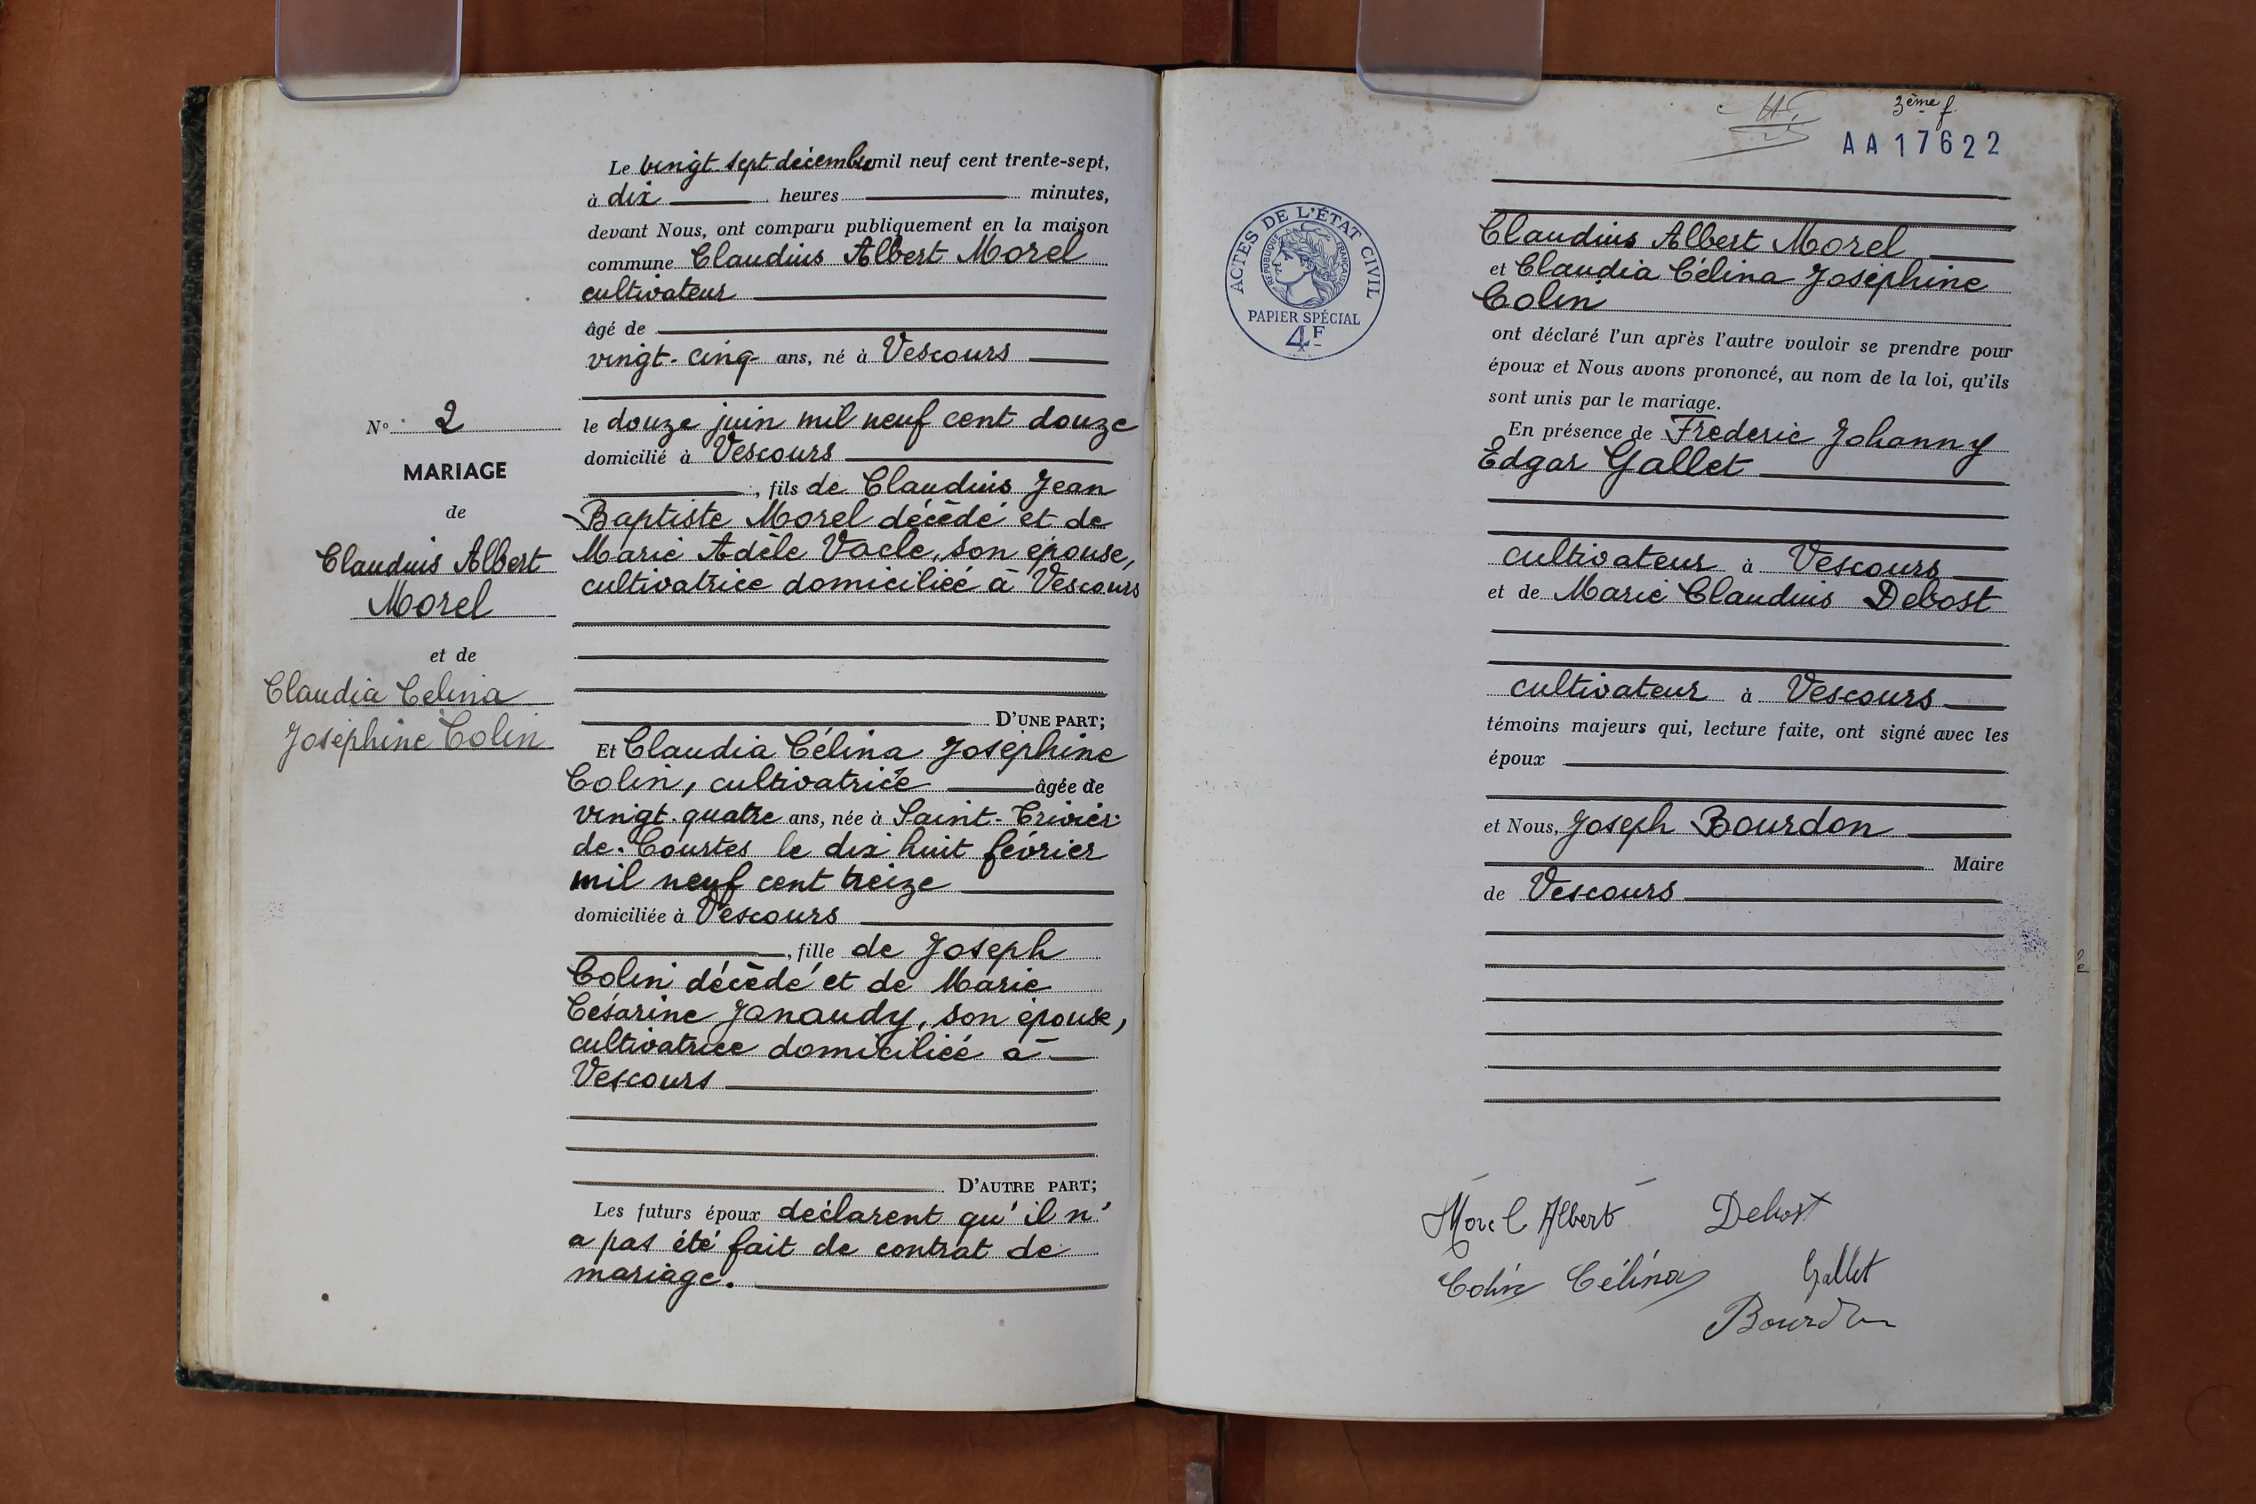 Le vingt-sept décembre mil neuf cent trente-sept,
à dix heures minutes,
devant Nous, ont comparu publiquement en la maison
commune Claudius Albert Morel
cultivateur
âgé de
vingt-cinq ans, né à Vescours
le douze juin mil neuf cent douze
domicilié à Vescours
, fils de Claudius Jean
Baptiste Morel décédé et de
Marie Adèle Vacle, son épouse,
cultivatrice domiciliée à Vescours
D'UNE PART;
N° 2
MARIAGE
de
Claudius Albert
Morel
et de
Claudia Célina
Joséphine Colin
Et Claudia Célina Joséphine
Colin, cultivatrice âgée de
vingt-quatre ans, née à Saint-Trivier-
de-Courtes le dix huit février
mil neuf cent treize
domiciliée à Vescours
, fille de Joseph
Colin décédé et de Marie
Césarine Janaudy, son épouse,
cultivatrice domiciliée à
Vescours
D'AUTRE PART;
Les futurs époux déclarent qu'il n'
a pas été fait de contrat de
mariage.
3ème f.
AA17622
ACTES DE L'ÉTAT CIVIL
RÉPUBLIQUE FRANÇAISE
PAPIER SPÉCIAL
4F
Claudius Albert Morel
et Claudia Célina Joséphine
Colin
ont déclaré l'un après l'autre vouloir se prendre pour
époux et Nous avons prononcé, au nom de la loi, qu'ils
sont unis par le mariage.
En présence de Frederic Johanny
Edgar Gallet
cultivateur à Vescours
et de Marie Claudius Debost
cultivateur à Vescours
témoins majeurs qui, lecture faite, ont signé avec les
époux
et Nous, Joseph Bourdon
Maire
de Vescours
Morel Albert Debost
Colin Célina Gallet
Bourdon